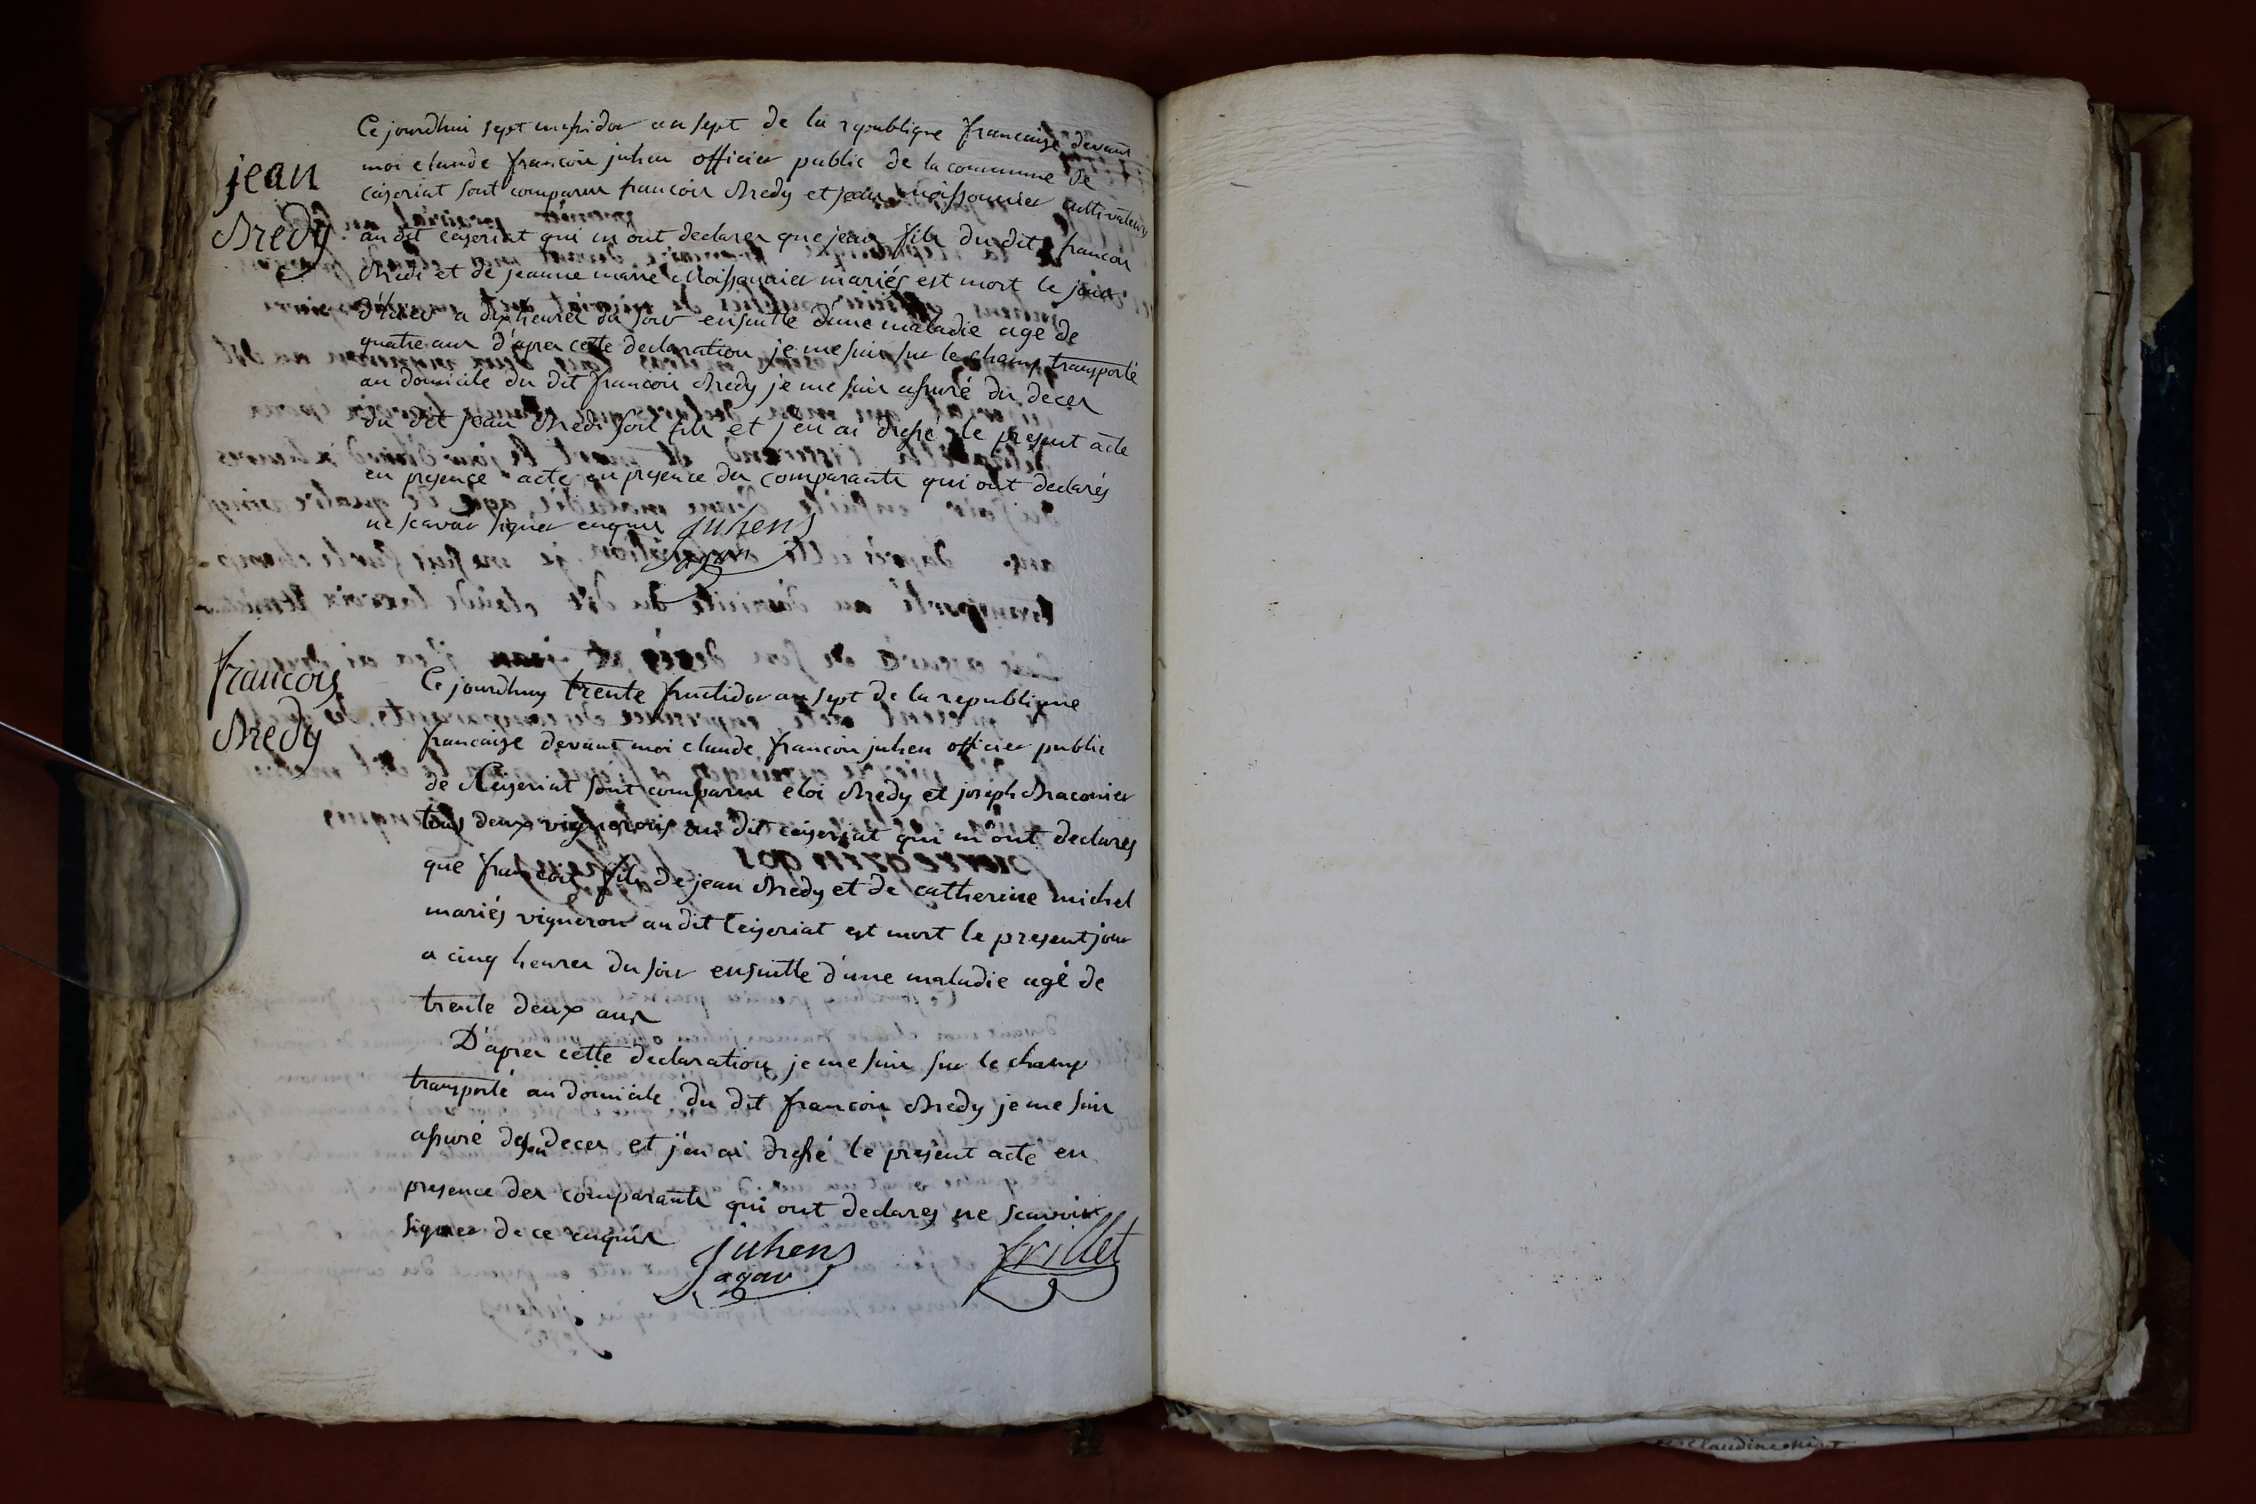 Ce jourdhui sept messidor an sept de la republique francaise devant
moi claude francois julien officier public de la commune de
jean
ceiseriat sont comparus francois Bredy et jean moissonnier cultivateurs
Bredy
au dit ceiseriat qui m'ont declares que jean fils du dit francois
Bredi et de jeanne marie Moissonnier mariés est mort le jour
d'hier a dix heures du soir ensuitte d'une maladie age de
quatre ans d'apres cette declaration je me suis sur le champ transporté
au domicile du dit francois Bredy je me suis assuré du deces
du dit jean Bredi soit fils et j'en ai dressé le present acte
en presence acte en presence des comparants qui ont declarés
ne scavoir signer enquis juliens
agav
francois
Ce jourdhuy trente fructidor an sept de la republique
Bredy
francaise devant moi claude francois julien officier public
de Ceiseriat sont comparus eloi Bredy et joseph Braconier
tous deux vignerons au dit ceiseriat qui m'ont declares
que francois fils de jean Bredy et de catherine michel
mariés vigneron au dit Ceiseriat est mort le present jour
a cinq heures du soir ensuitte d'une maladie agé de
trente deux ans
D'apres cette declaration je me suis sur le champ
transporté au domicile du dit francois Bredy je me suis
assuré de son deces et j'en ai dressé le present acte en
presence des comparants qui ont declares ne scavoir
signer de ce enquis juliens frillet
agav